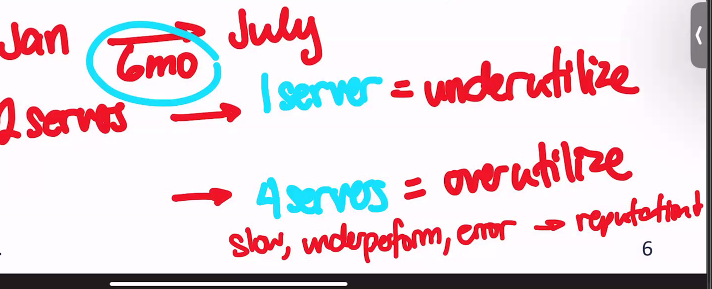 Jan → July
6mo
2 servers → 1 server = underutilize
→ 4 servers = overutilize
slow, underperform, error → reputation↓
6